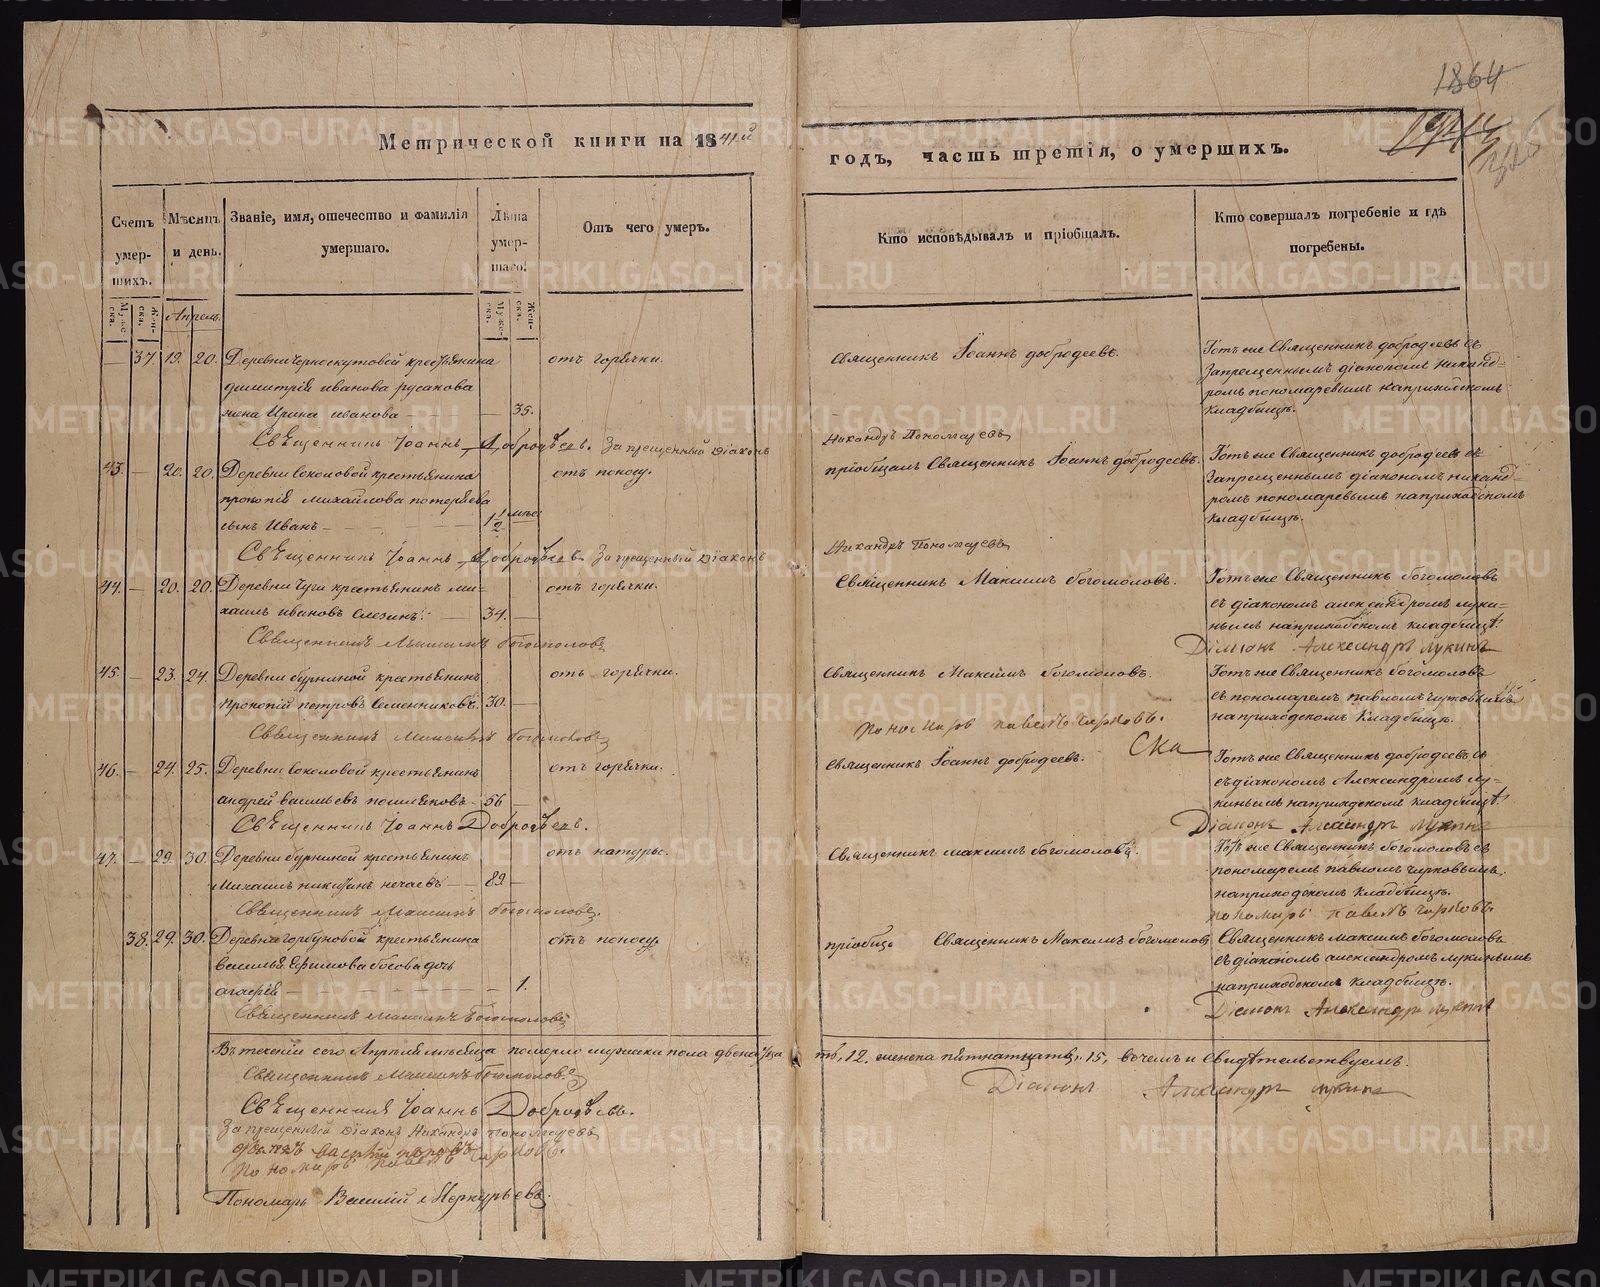 1864
Метрической книги на 1841й
годъ, часть третія, о умершихъ.
Счетъ умер-шихъ.
Мѣсяцъ и день.
Званіе, имя, отечество и фамилія умершаго.
Лѣта умер-шаго.
Отъ чего умеръ.
Кто исповѣдывалъ и пріобщалъ.
Кто совершалъ погребеніе и гдѣ погребены.
Муже-ска.
Жен-ска.
Апрель.
Муже-ска.
Жен-ска.
— 37. 19. 20. Деревни Черноскутовой крестьянина
димитрія иванова русакова
жена Ирина иванова — — 35.
отъ горячки.
Священникъ Іоаннъ добродеевъ.
Тотъ же Священникъ добродеевъ съ
Запрещеннымъ діакономъ никанд-
ромъ пономаревымъ наприходскомъ
кладбищѣ.
Священникъ Іоаннъ Добродѣевъ. Запрещенный діаконъ
Никандръ Пономаревъ
43. — 20. 20. Деревни Соколовой крестьянина
прокопія михайлова потеряева
сынъ Иванъ — 1 1/2 мѣс.
отъ поносу.
пріобщалъ Священникъ Іоаннъ добродеевъ.
Тотъ же Священникъ добродеевъ съ
Запрещеннымъ діакономъ никанд-
ромъ пономаревымъ наприходскомъ
кладбищѣ.
Священникъ Іоаннъ Добродѣевъ. Запрещенный діаконъ
Никандръ Пономаревъ
44. — 20. 20. Деревни Чуги крестьянинъ ми-
хаилъ ивановъ 34. —
отъ горячки.
Священникъ Максимъ богомоловъ.
Тотъ же Священникъ богомоловъ
съ діакономъ александромъ луки-
нымъ наприходскомъ кладбищѣ.
Священникъ Максимъ Богомоловъ
Діаконъ Александръ Лукинъ
45. — 23. 24. Деревни бурниной крестьянинъ
прокопій петровъ Семенниковъ. 30. —
отъ горячки.
Священникъ Максимъ богомоловъ.
Тотъ же Священникъ богомоловъ
съ пономаремъ павломъ
наприходскомъ кладбищѣ.
Священникъ Максимъ Богомоловъ
Пономарь павелъ
46. — 24. 25. Деревни Соколовой крестьянинъ
андрей васильевъ 56 —
отъ горячки.
Священникъ Іоаннъ добродеевъ.
Тотъ же Священникъ добродеевъ съ
съ діакономъ Александромъ лу-
кинымъ наприходскомъ кладбищѣ.
Священникъ Іоаннъ Добродѣевъ.
Діаконъ Александръ Лукинъ
47. — 29. 30. Деревни бурниной крестьянинъ
Михаилъ никитинъ нечаевъ — 89 —
отъ натуры.
Священникъ максимъ богомоловъ.
Тотъ же Священникъ богомоловъ съ
пономаремъ павломъ
наприходскомъ кладбищѣ.
Священникъ Максимъ Богомоловъ.
пономарь павелъ
38. 29. 30. Деревни горбуновой крестьянина
василья ефимова босова дочь
агафія — 1.
отъ поносу.
пріобщ. Священникъ Максимъ богомоловъ
Священникъ максимъ богомоловъ
съ діакономъ александромъ лукинымъ
наприходскомъ кладбищѣ.
Священникъ Максимъ Богомоловъ
Діаконъ Александръ Лукинъ
Въ теченіи сего Апрѣля мѣсяца померло мужска пола двенатца
ть, 12, женска пятнатцать, 15, вочемъ и Свидѣтельствуемъ.
Священникъ Максимъ Богомоловъ
Діаконъ Александръ Лукинъ
Священникъ Іоаннъ Добродѣевъ.
Запрещенный діаконъ Никандръ Пономаревъ
Пономарь Павелъ
Пономарь Василій Меркурьевъ.
METRIKI.GASO-URAL.RU